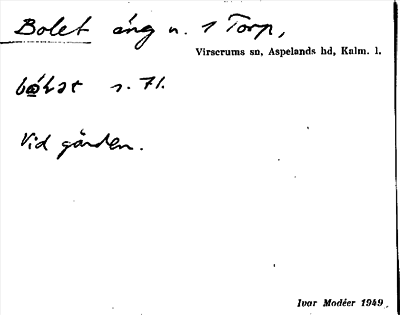 Bolet äng n. 1 Torp,
Virserums sn, Aspelands hd, Kalm. l.
s. 71.
Vid gården.
Ivar Modéer 1949